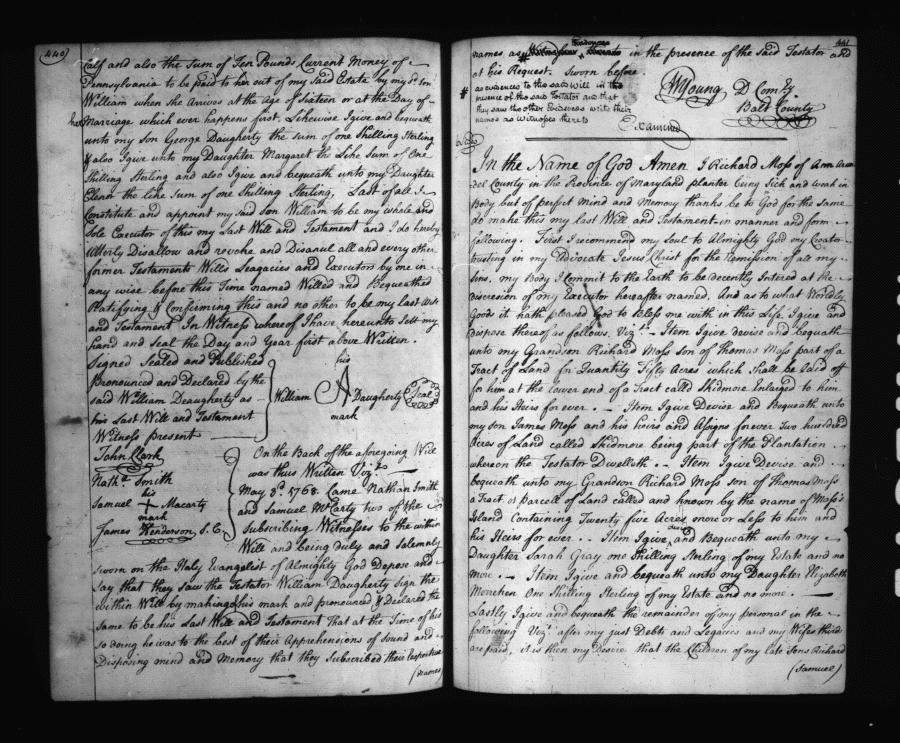 440
Calf and also the Sum of Ten Pounds Current Money of
Pennsylvania to be paid to her out of my Said Estate by my Sd Son
William when she Arrives at the Age of Sixteen or at the Day of
her Marriage which ever happens first. Likewise I give and bequeath
unto my Son George Daugherty the sum of one Shilling Sterling
& also I give unto my Daughter Margaret the Like Sum of One
Shilling Sterling and also I give and bequeath unto my Daughter
Elenor the like Sum of one Shilling Sterling, Last of all I
Constitute and appoint my said Son William to be my whole and
Sole Executor of this my Last Will and Testament and I do hereby
Utterly Disallow and revoke and Disanul all and every other
former Testaments Wills Leagacies and Executors by me in
any wise before this Time named Willed and Bequeathed
Ratifying & Confirming this and no other to be my last Will
and Testament In Witness whereof I have hereunto Sett my
hand and Seal the Day and Year first above Written.
Signed Sealed and Published
Pronounced and Declared by the
said Wm William Deaugherty as
his Last Will and Testament
Witness present
William his A mark Daugherty Seal
John Clark
Nathl Smith
Samuel his + mark Macarty
James Henderson S. C.
On the Back of the aforegoing Will
was thus Written Vizt
May 3d 1768. Came Nathan Smith
and Samuel McCarty two of the
Subscribing Witnesses to the within
Will and being duly and Solemnly
Sworn on the Holy Evangelist of Almighty God Depose and
Say that they Saw the Testator William Daugherty Sign the
within Will by making his mark and pronounced & Declared the
Same to be his Last Will and Testament That at the Time of his
so doing he was to the best of their Apprehensions of Sound and
Disposing mind and Memory that they Subscribed their respective
(names)
441
names as in the presence of the Said Testator and
at his Request. Sworn before
# as evidences to the said Will in the
presence of the said Testator and that
they saw the other Evidences write their
names as Witnesses thereto
WYoung D Comty
Balt County
Examined
In the Name of God Amen I Richard Moss of Ann Arun
del County in the Province of Maryland planter being Sick and weak in
Body but of perfect Mind and Memory thanks be to God for the Same
do make this my last Will and Testament in manner and form
following. First I recommend my Soul to Almighty God my Creator
trusting in my Advocate Jesus Christ for the Remission of all my
sins, my Body I Commit to the Earth to be Decently Intered at the
discresion of my Executor hereafter named. And as to what Worldly
Goods it hath pleased God to bless me with in this Life I give and
dispose thereof as follows. Vizt. Item I give devise and bequeath
unto my Grandson Richard Moss Son of Thomas Moss part of a
Tract of Land for Quantity Fifty Acres which Shall be laid off
for him at the lower end of a Tract called Skidmore Enlarged to him
and his Heirs for ever. Item I give Devise and Bequeath unto
my son James Moss and his heirs and Asigns forever Two hundred
Acres of Land called Skidmore being part of the Plantation
whereon the Testator Dwelleth Item I give Devise and
bequeath unto my Grandson Richard Moss Son of Thomas Moss
a Tract or Parcell of Land called and known by the name of Moss's
Island Containing Twenty five Acres more or Less to him and
his Heirs for ever. Item I give and Bequeath unto my
Daughter Sarah Gray one Shilling Sterling of my Estate and no
more. Item I give and bequeath unto my Daughter Elizabeth
One Shilling Sterling of my Estate and no more.
Lastly I give and bequeath the remainder of my personal in the
following Vizt after my just Debts and Legacies and my Wifes third
are paid, it is then my Desire that the Children of my late Sons Richard
(Samuel)